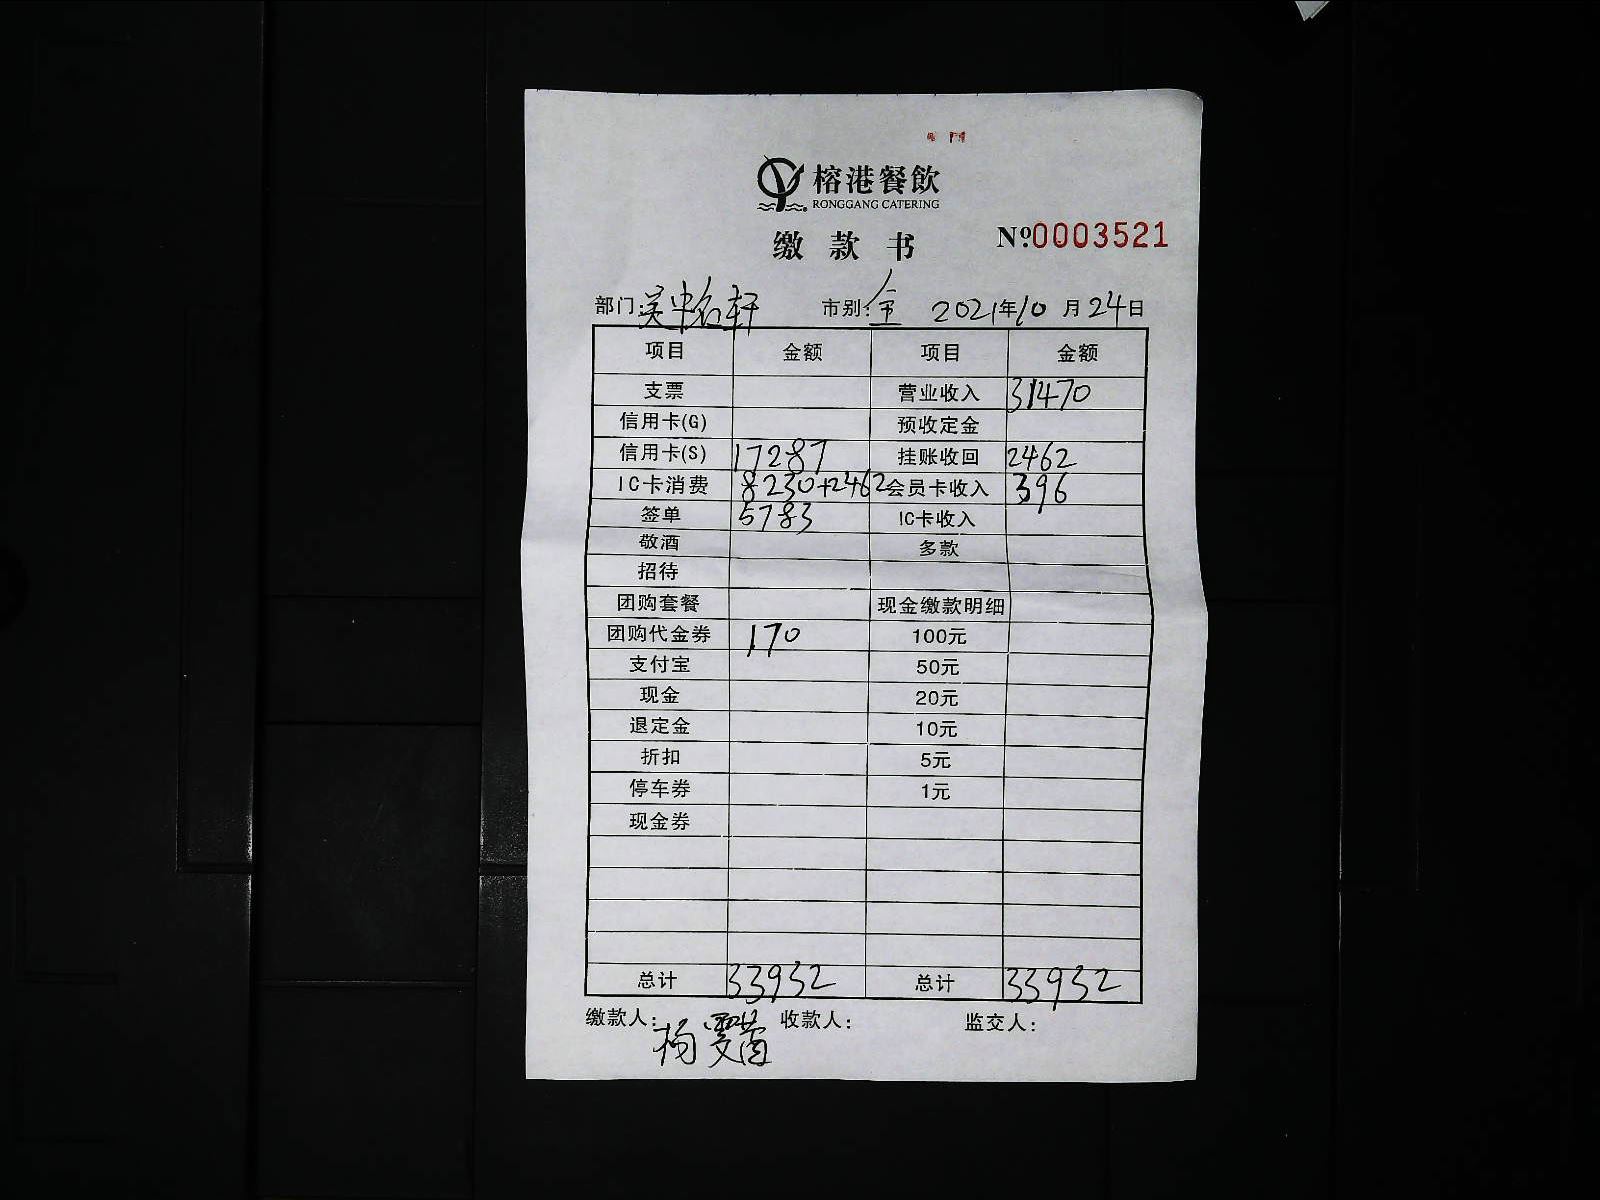 榕港餐飲
RONGGANG CATERING
缴款书
Nº0003521
部门:吴中名轩 市别:全 2021年10月24日
项目 金额 项目 金额
支票 营业收入 31470
信用卡(G) 预收定金
信用卡(S) 17287 挂账收回 2462
IC卡消费 8230+2462 会员卡收入 396
签单 5783 IC卡收入
敬酒 多款
招待
团购套餐 现金缴款明细
团购代金券 170 100元
支付宝 50元
现金 20元
退定金 10元
折扣 5元
停车券 1元
现金券
总计 33932 总计 33932
缴款人:杨雯茜 收款人: 监交人: